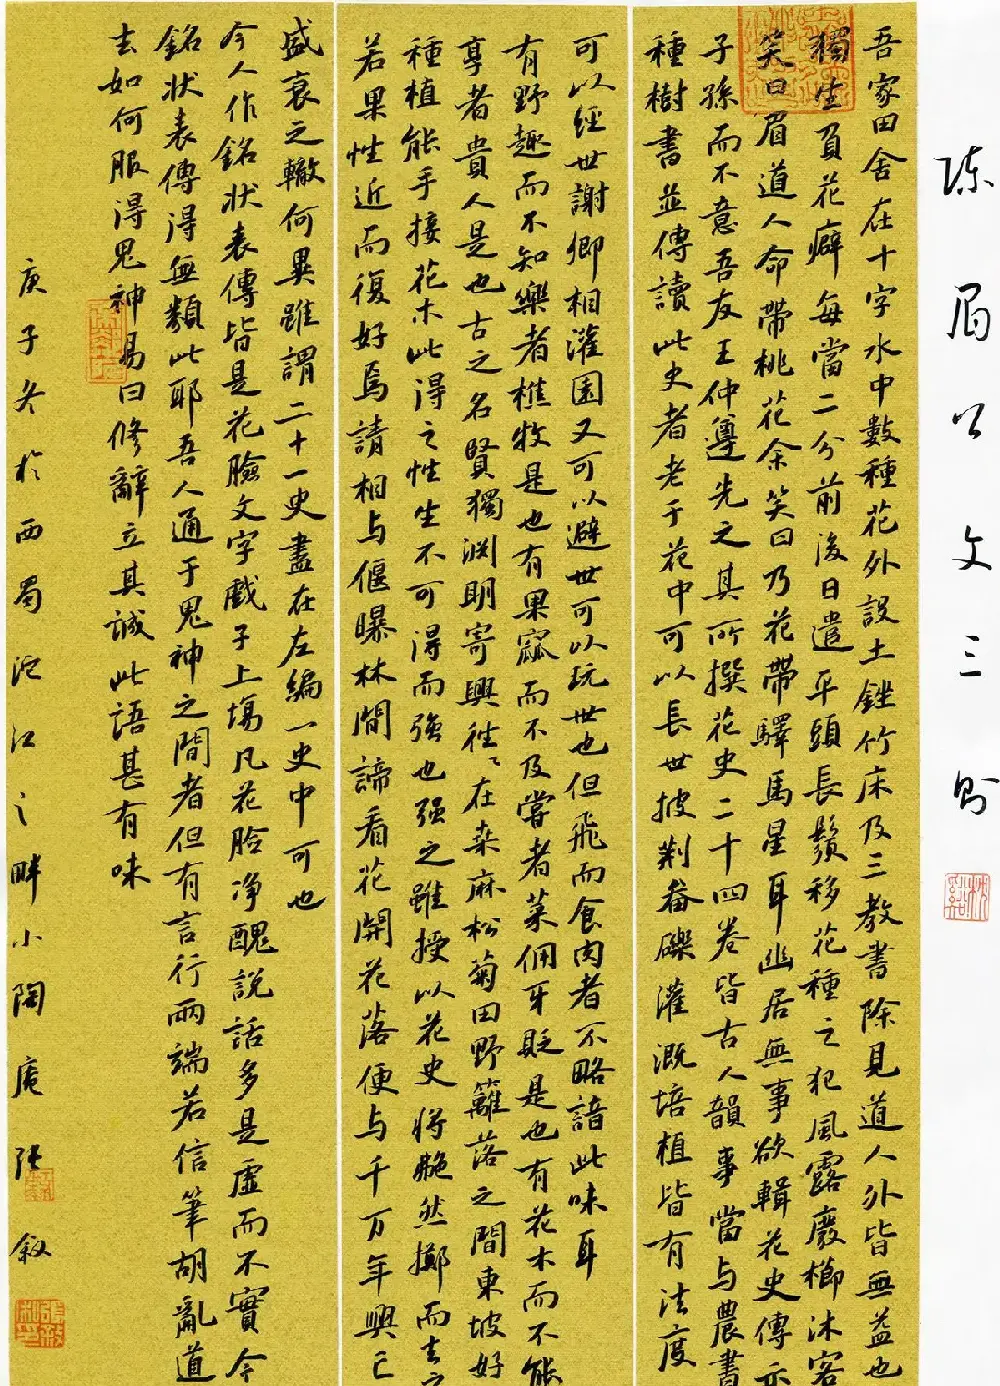 陈眉公文三则
吾家田舍在十字水中數種花外設土銼竹床及三教書除見道人外皆無益也
獨生負花癖每當二分前後日遣平頭長鬚移花種之犯風露廢櫛沐客
笑曰眉道人命帶桃花余笑曰乃花帶驛馬星耳幽居無事欲輯花史傳示
子孫而不意吾友王仲遵先之其所撰花史二十四卷皆古人韻事當与農書
種樹書並傳讀此史者老于花中可以長世披荆畚礫灌溉培植皆有法度
可以經世謝卿相灌園又可以避世可以玩世也但飛而食肉者不略諳此味耳
有野趣而不知樂者樵牧是也有果窳而不及嘗者菜佣牙贩是也有花木而不能
享者貴人是也古之名賢獨渊明寄興往々在桑麻松菊田野籬落之間東坡好
種植能手接花木此得之性生不可得而強也强之雖授以花史将艴然擲而去之
若果性近而復好焉請相与偃曝林間諦看花開花落便与千万年興亡
盛衰之轍何異雖謂二十一史盡在左編一史中可也
今人作銘状表傳皆是花臉文字戲子上場凡花脸净醜説話多是虚而不實今
銘状表傳得無類此耶吾人通于鬼神之間者但有言行兩端若信筆胡亂道
去如何服得鬼神易曰修辭立其誠此語甚有味
庚子冬於西蜀沱江之畔小陶庵张叙